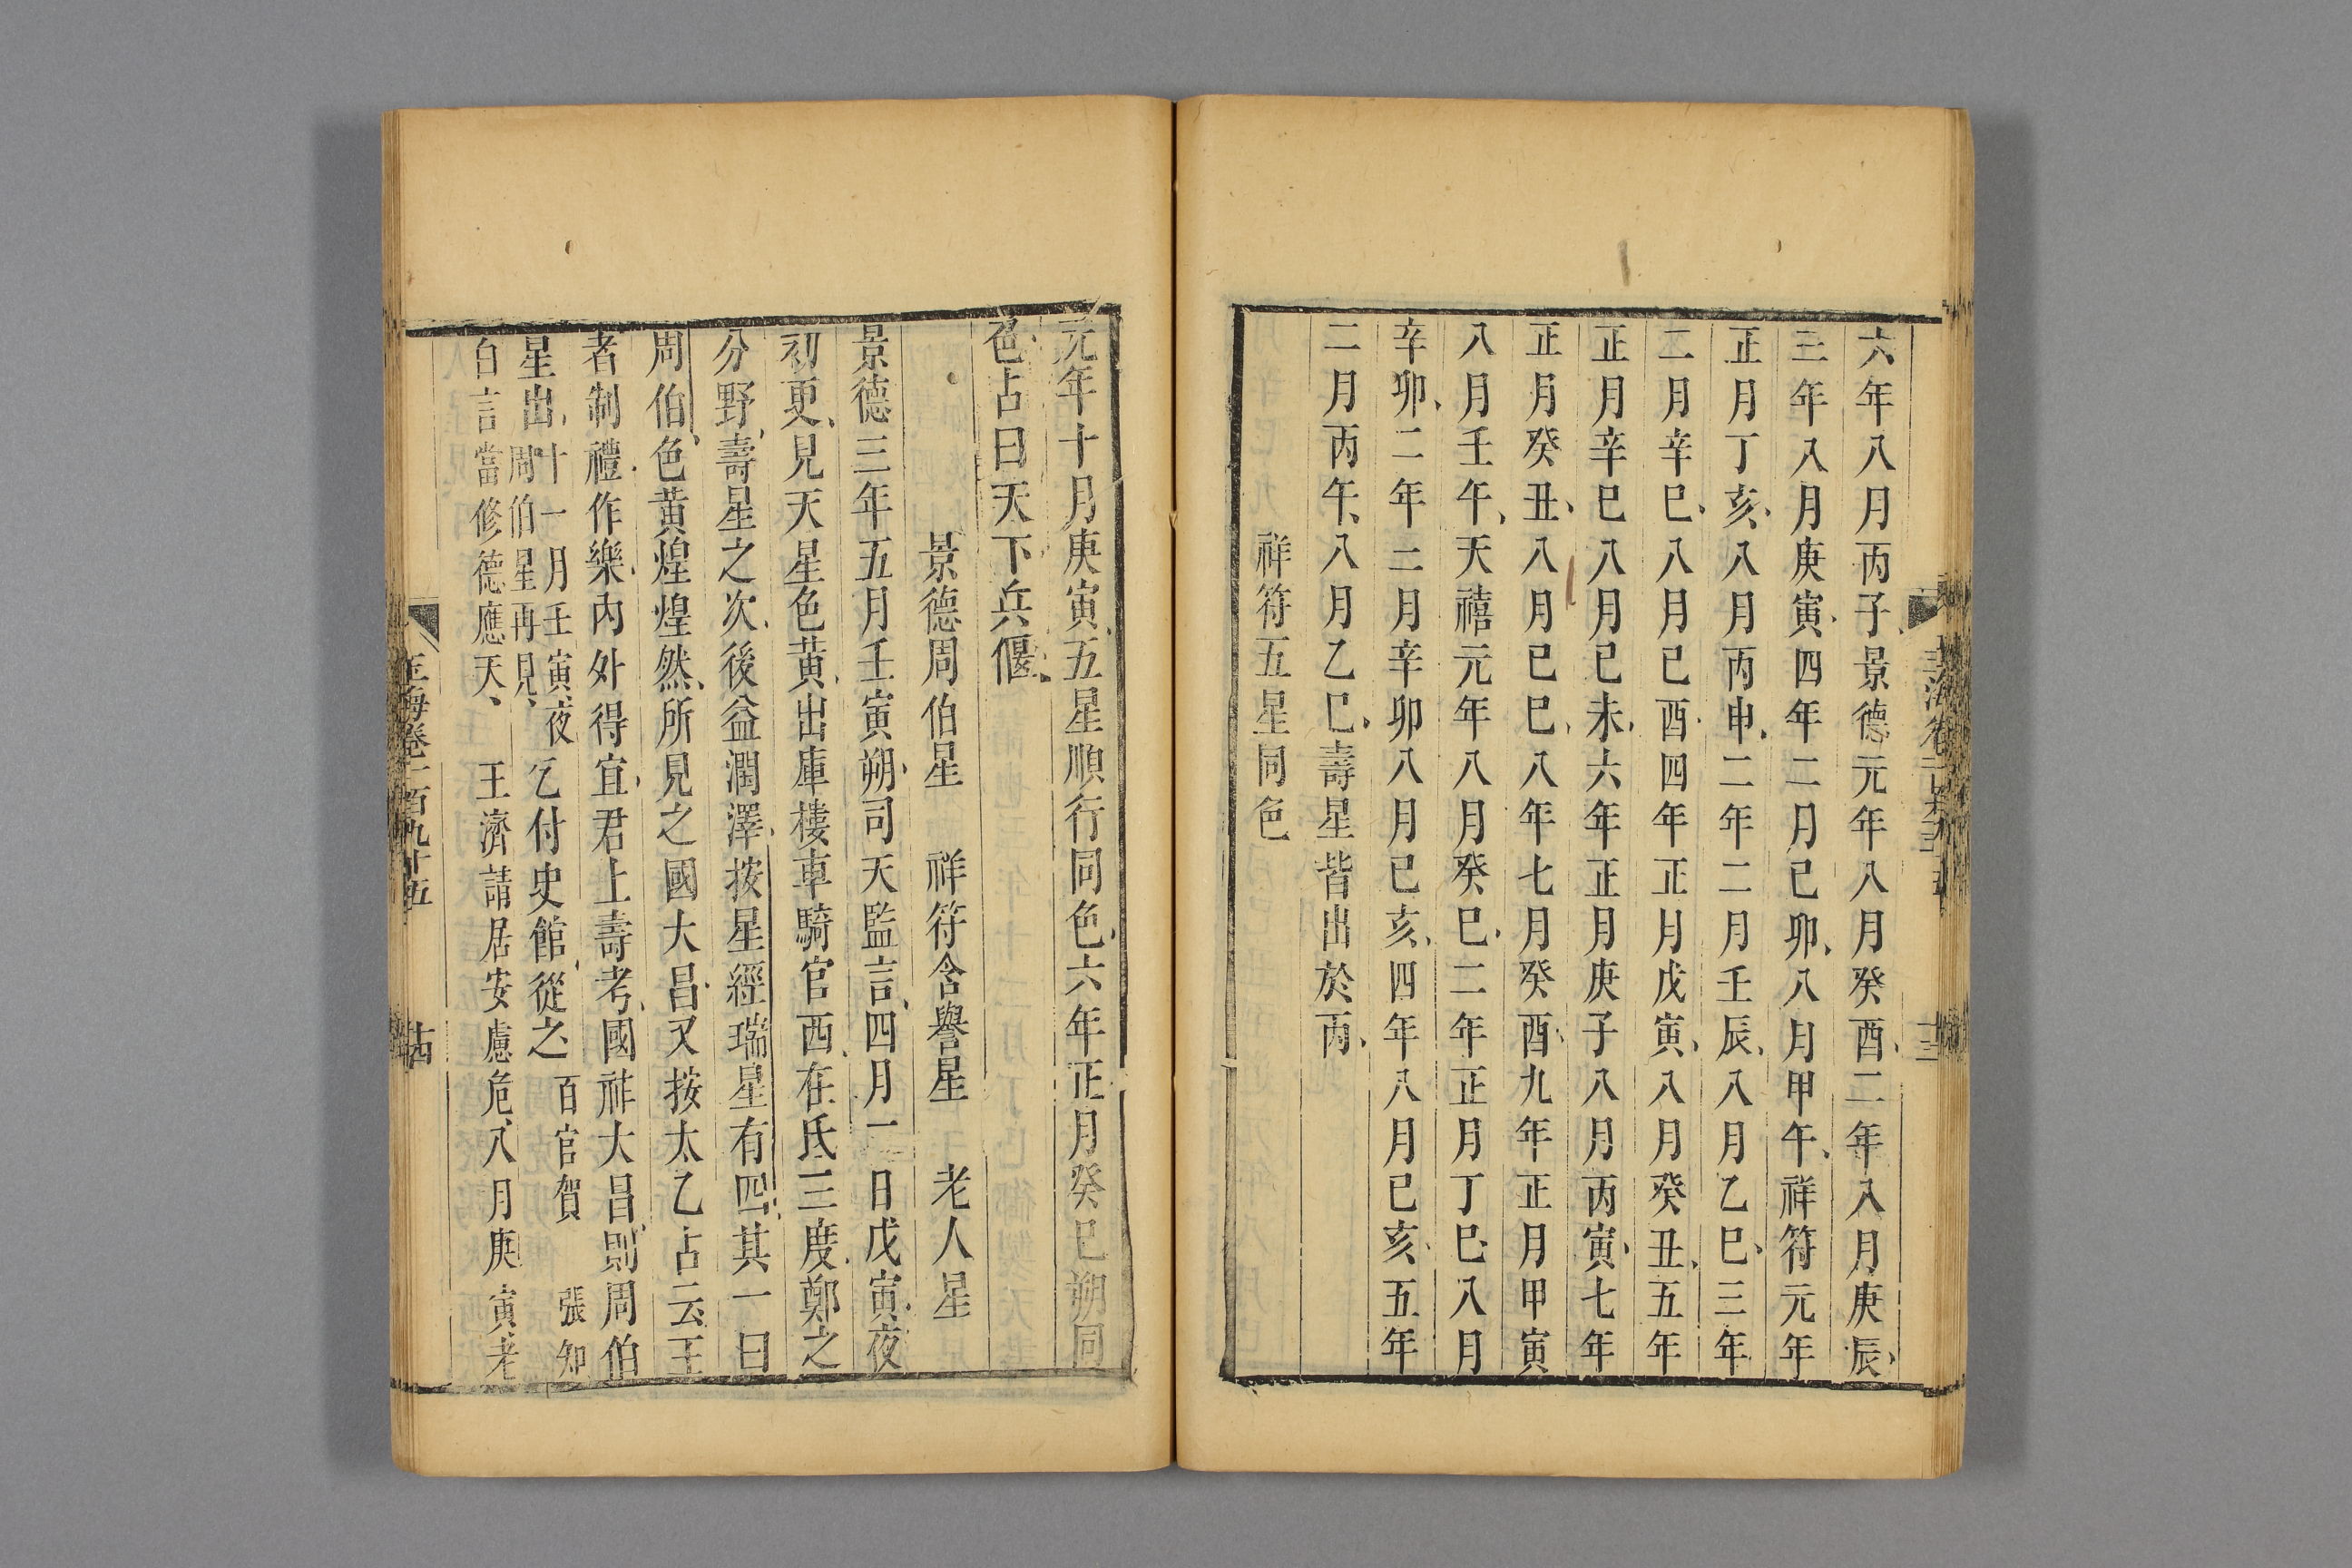 六年八月丙子景德元年八月癸酉二年八月庚辰
三年八月庚寅四年二月己卯八月甲午祥符元年
正月丁亥八月丙申二年二月壬辰八月乙巳三年
二月辛巳八月己酉四年正月戊寅八月癸丑五年
正月辛巳八月己未六年正月庚子八月丙寅七年
正月癸丑八月己巳八年七月癸酉九年正月甲寅
八月壬午天禧元年八月癸巳二年正月丁巳八月
辛卯二年二月辛卯八月己亥四年八月己亥五年
二月丙午八月乙巳壽星皆出於丙
祥符五星同色
元年十月庚寅五星順行同色六年正月癸巳朔同
色占曰天下兵偃
景德周伯星 祥符含譽星 老人星
景德三年五月壬寅朔司天監言四月二日戊寅夜
初更見天星色黃出庫樓車騎官西在氐三度鄭之
分野壽星之次後益潤澤按星經瑞星有四其一曰
周伯色黃煌煌然所見之國大昌又按太乙占云王
者制禮作樂內外得宜君上壽考國祚大昌則周伯
星出十一月壬寅夜周伯星再見乞付史館從之百官賀 張知
白言當修德應天 王濟請居安慮危八月庚寅老
玉海卷一百九十五
十四